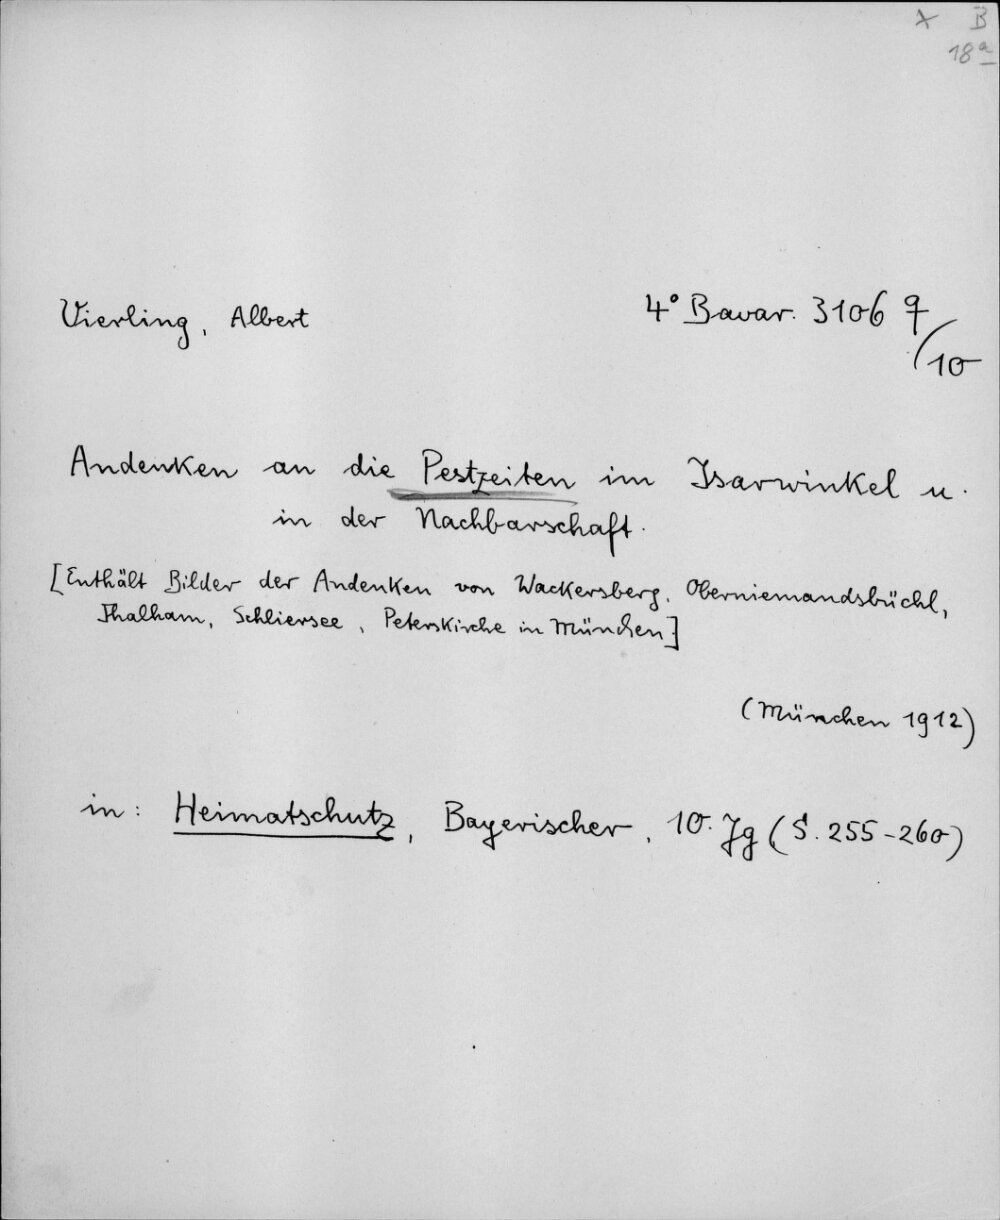 X B
18a
Vierling, Albert 4° Bavar. 3106 q
/10
Andenken an die Pestzeiten im Isarwinkel u.
in der Nachbarschaft.
[Enthält Bilder der Andenken von Wackersberg, Oberniemandsbüchl,
Thalham, Schliersee, Peterskirche in München]
(München 1912)
in: Heimatschutz, Bayerischer, 10. Jg (S. 255-260)